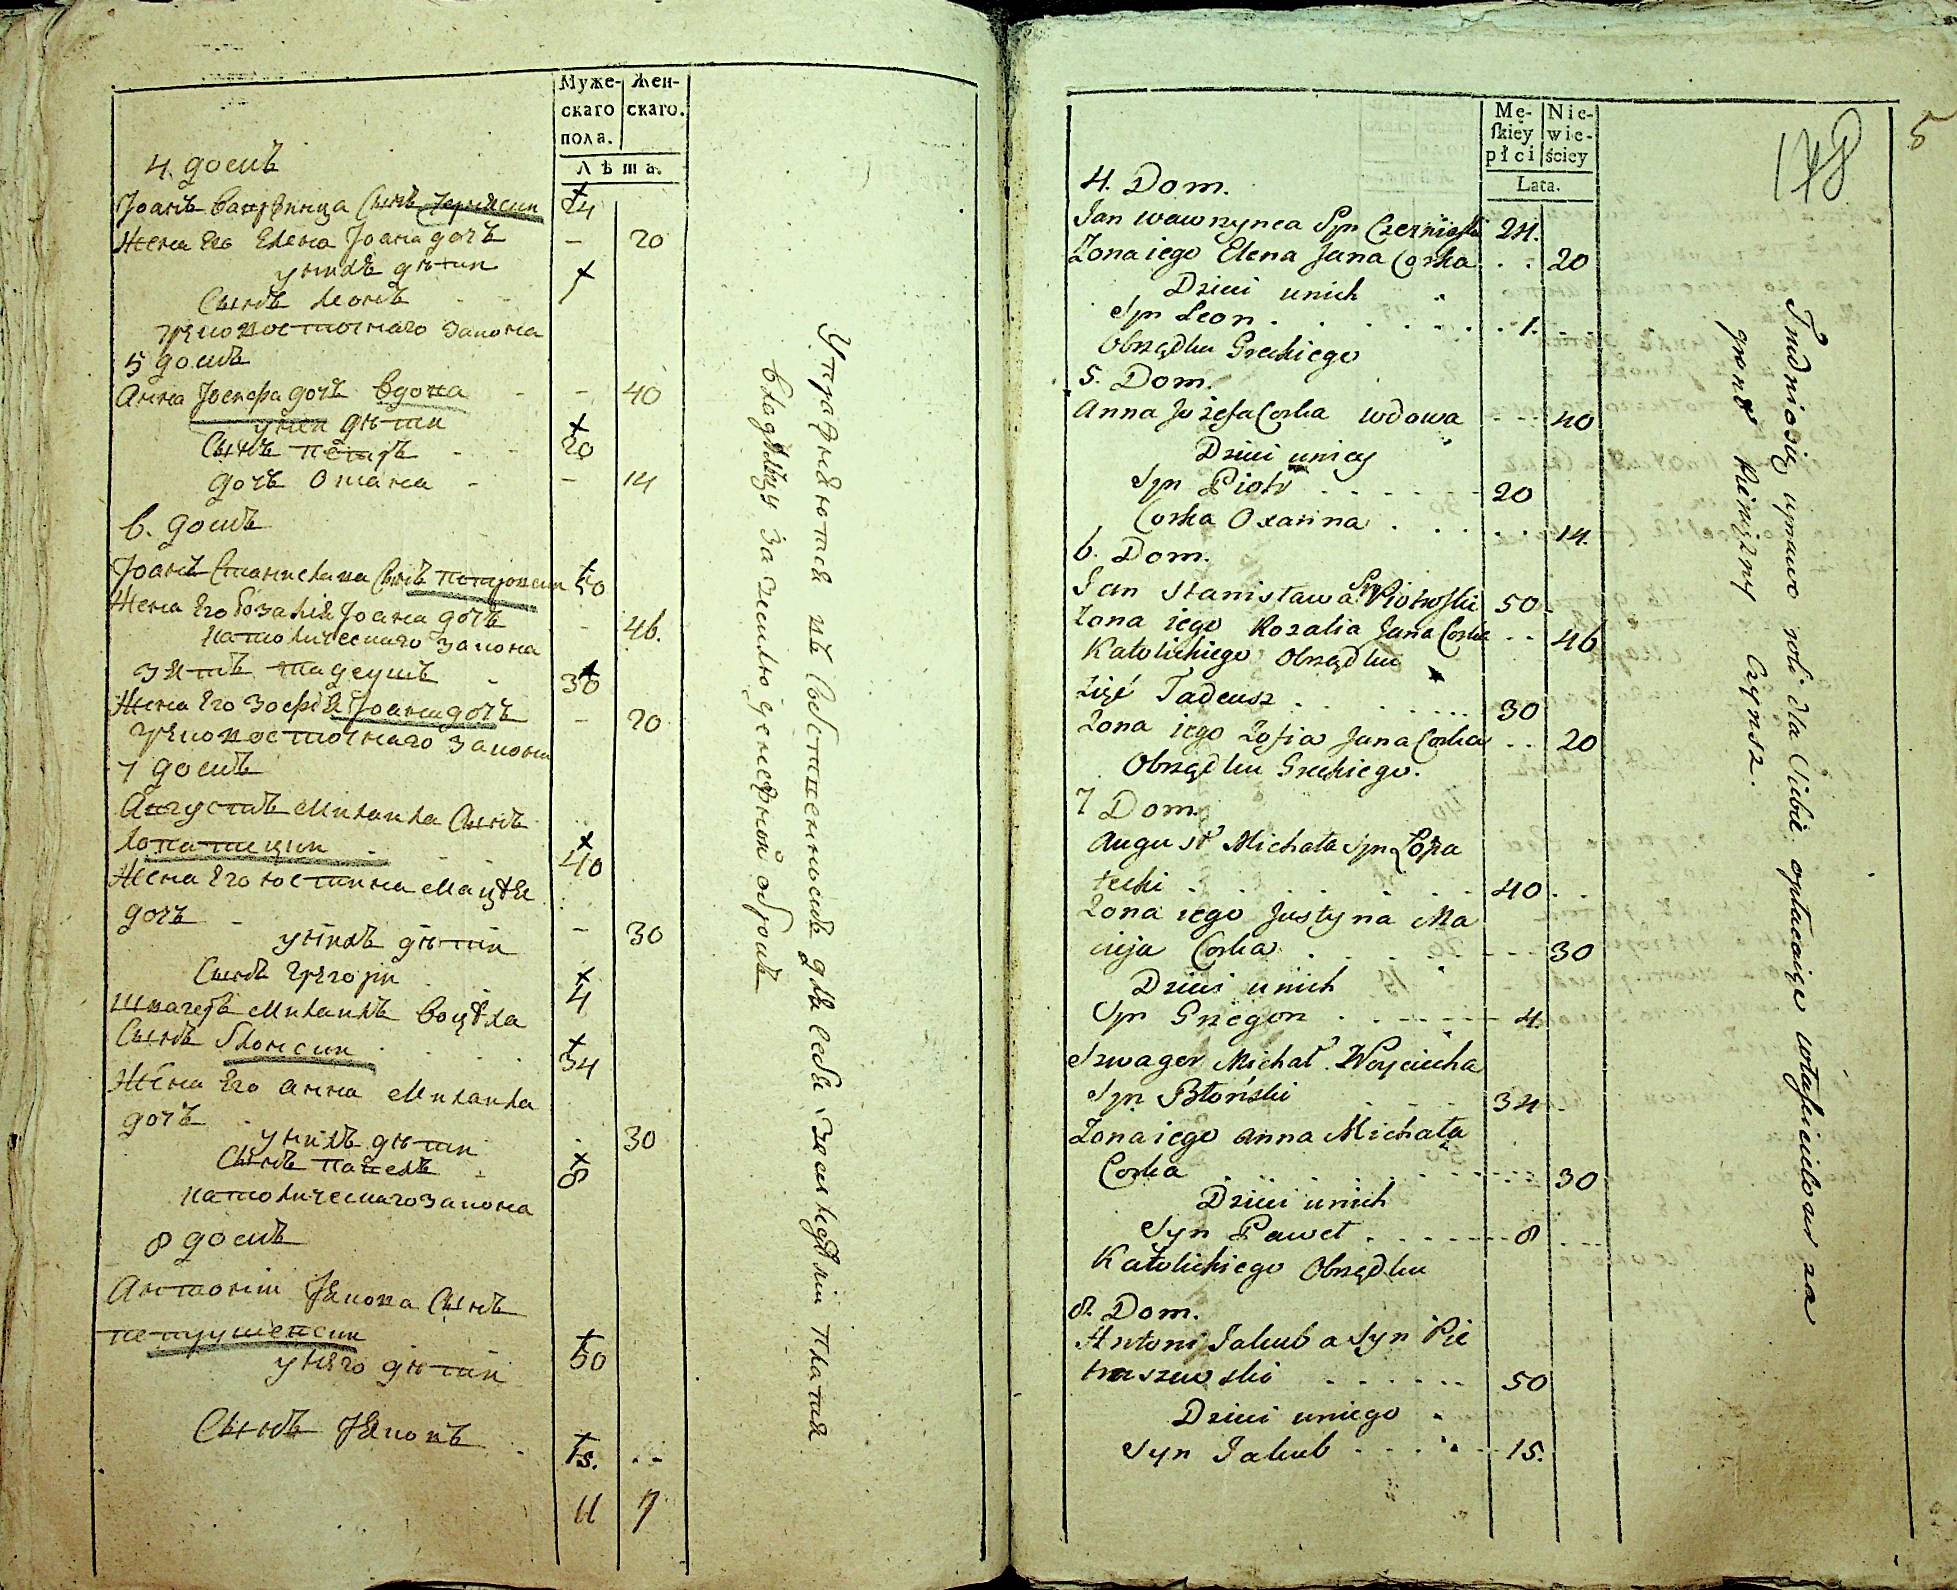 Муже-
скаго
пола.
Жен-
скаго.
Лѣта.
4. домъ
Іоанъ Вавржинца Сынъ Черняски 24
Жена Его Елена Іоана дочь – 20
у нихъ дѣти
Сынъ Леонъ 1
греко восточнаго закона
5 домъ
Анна Іосифа дочь вдова – 40
у ней дѣти
Сынъ Петръ 20
дочь Оxана – 14
6. домъ
Іоанъ Станислава Сынъ Петровски 50
Жена Его Розалія Іоана дочь – 46.
католическаго закона
Зять Тадеушъ 30
Жена Его Зофія Іоана дочь – 20
греко восточнаго закона
7 домъ
Августъ Михаила Сынъ
Лопатецки 40
Жена Его Юстина Мацѣя
дочь – 30
у нихъ дѣти
Сынъ Грегори 4
Швагеръ Михаилъ Войцѣха
Сынъ Блонски 34
Жена Его Анна Михаила
дочь 30
у нихъ дѣти
Сынъ Павелъ 8
католическаго закона
8 домъ
Антоній Якова Сынъ
Петрушевски 50
у него дѣти
Сынъ Яковъ 15. . -
11 7
Упражняются въ собственность для себя земледѣліи платя
владѣльцу за землю денежной оброкъ
Mę-
skiey
płci
Nie-
wie-
ściey
Lata.
178
5
4. Dom.
Jan Wawrzynca Syn Czerniaski 24.
Zona iego Elena Jana Corka . . 20
Dzieci unich
Syn Leon . . . . . . . 1. . .
Obrządku Greckiego
5. Dom.
Anna Jozefa Corka wdowa - - - 40
Dzieci uniey
Syn Piotr . . . . . . 20
Corka Oxanna . . . . . . 14.
6. Dom.
Jan Stanisława Syn Piotrowski 50.
Zona iego Rozalia Jana Corka - - 46
Katolickiego Obrządku
Zięć Tadeusz . . . . . . . 30
Zona iego Zofia Jana Corka . . 20
Obrządku Greckiego.
7 Dom.
August Michała Syn Łopa
tecki . . . . . . . 40 . .
Zona iego Justyna Ma
cieja Corka . . . . - - - 30
Dzieci unich
Syn Grzegorz . . - - - - - 4.
Szwager Michał Woyciecha
Syn Błoński . . . . 34 .
Zona iego Anna Michała
Corka . . . . . . - - - 30
Dzieci unich
Syn Paweł . . . - - - - 8 . . .
Katolickiego Obrządku
8. Dom.
Antoni Jakuba Syn Pie
truszewski . . . . . . 50
Dzieci uniego
Syn Jakub - - - . . - - 15.
Trudnią się uprawą roli dla Siebie opłacaiąc właścicielowi za
grunt pieniężny Czynsz.